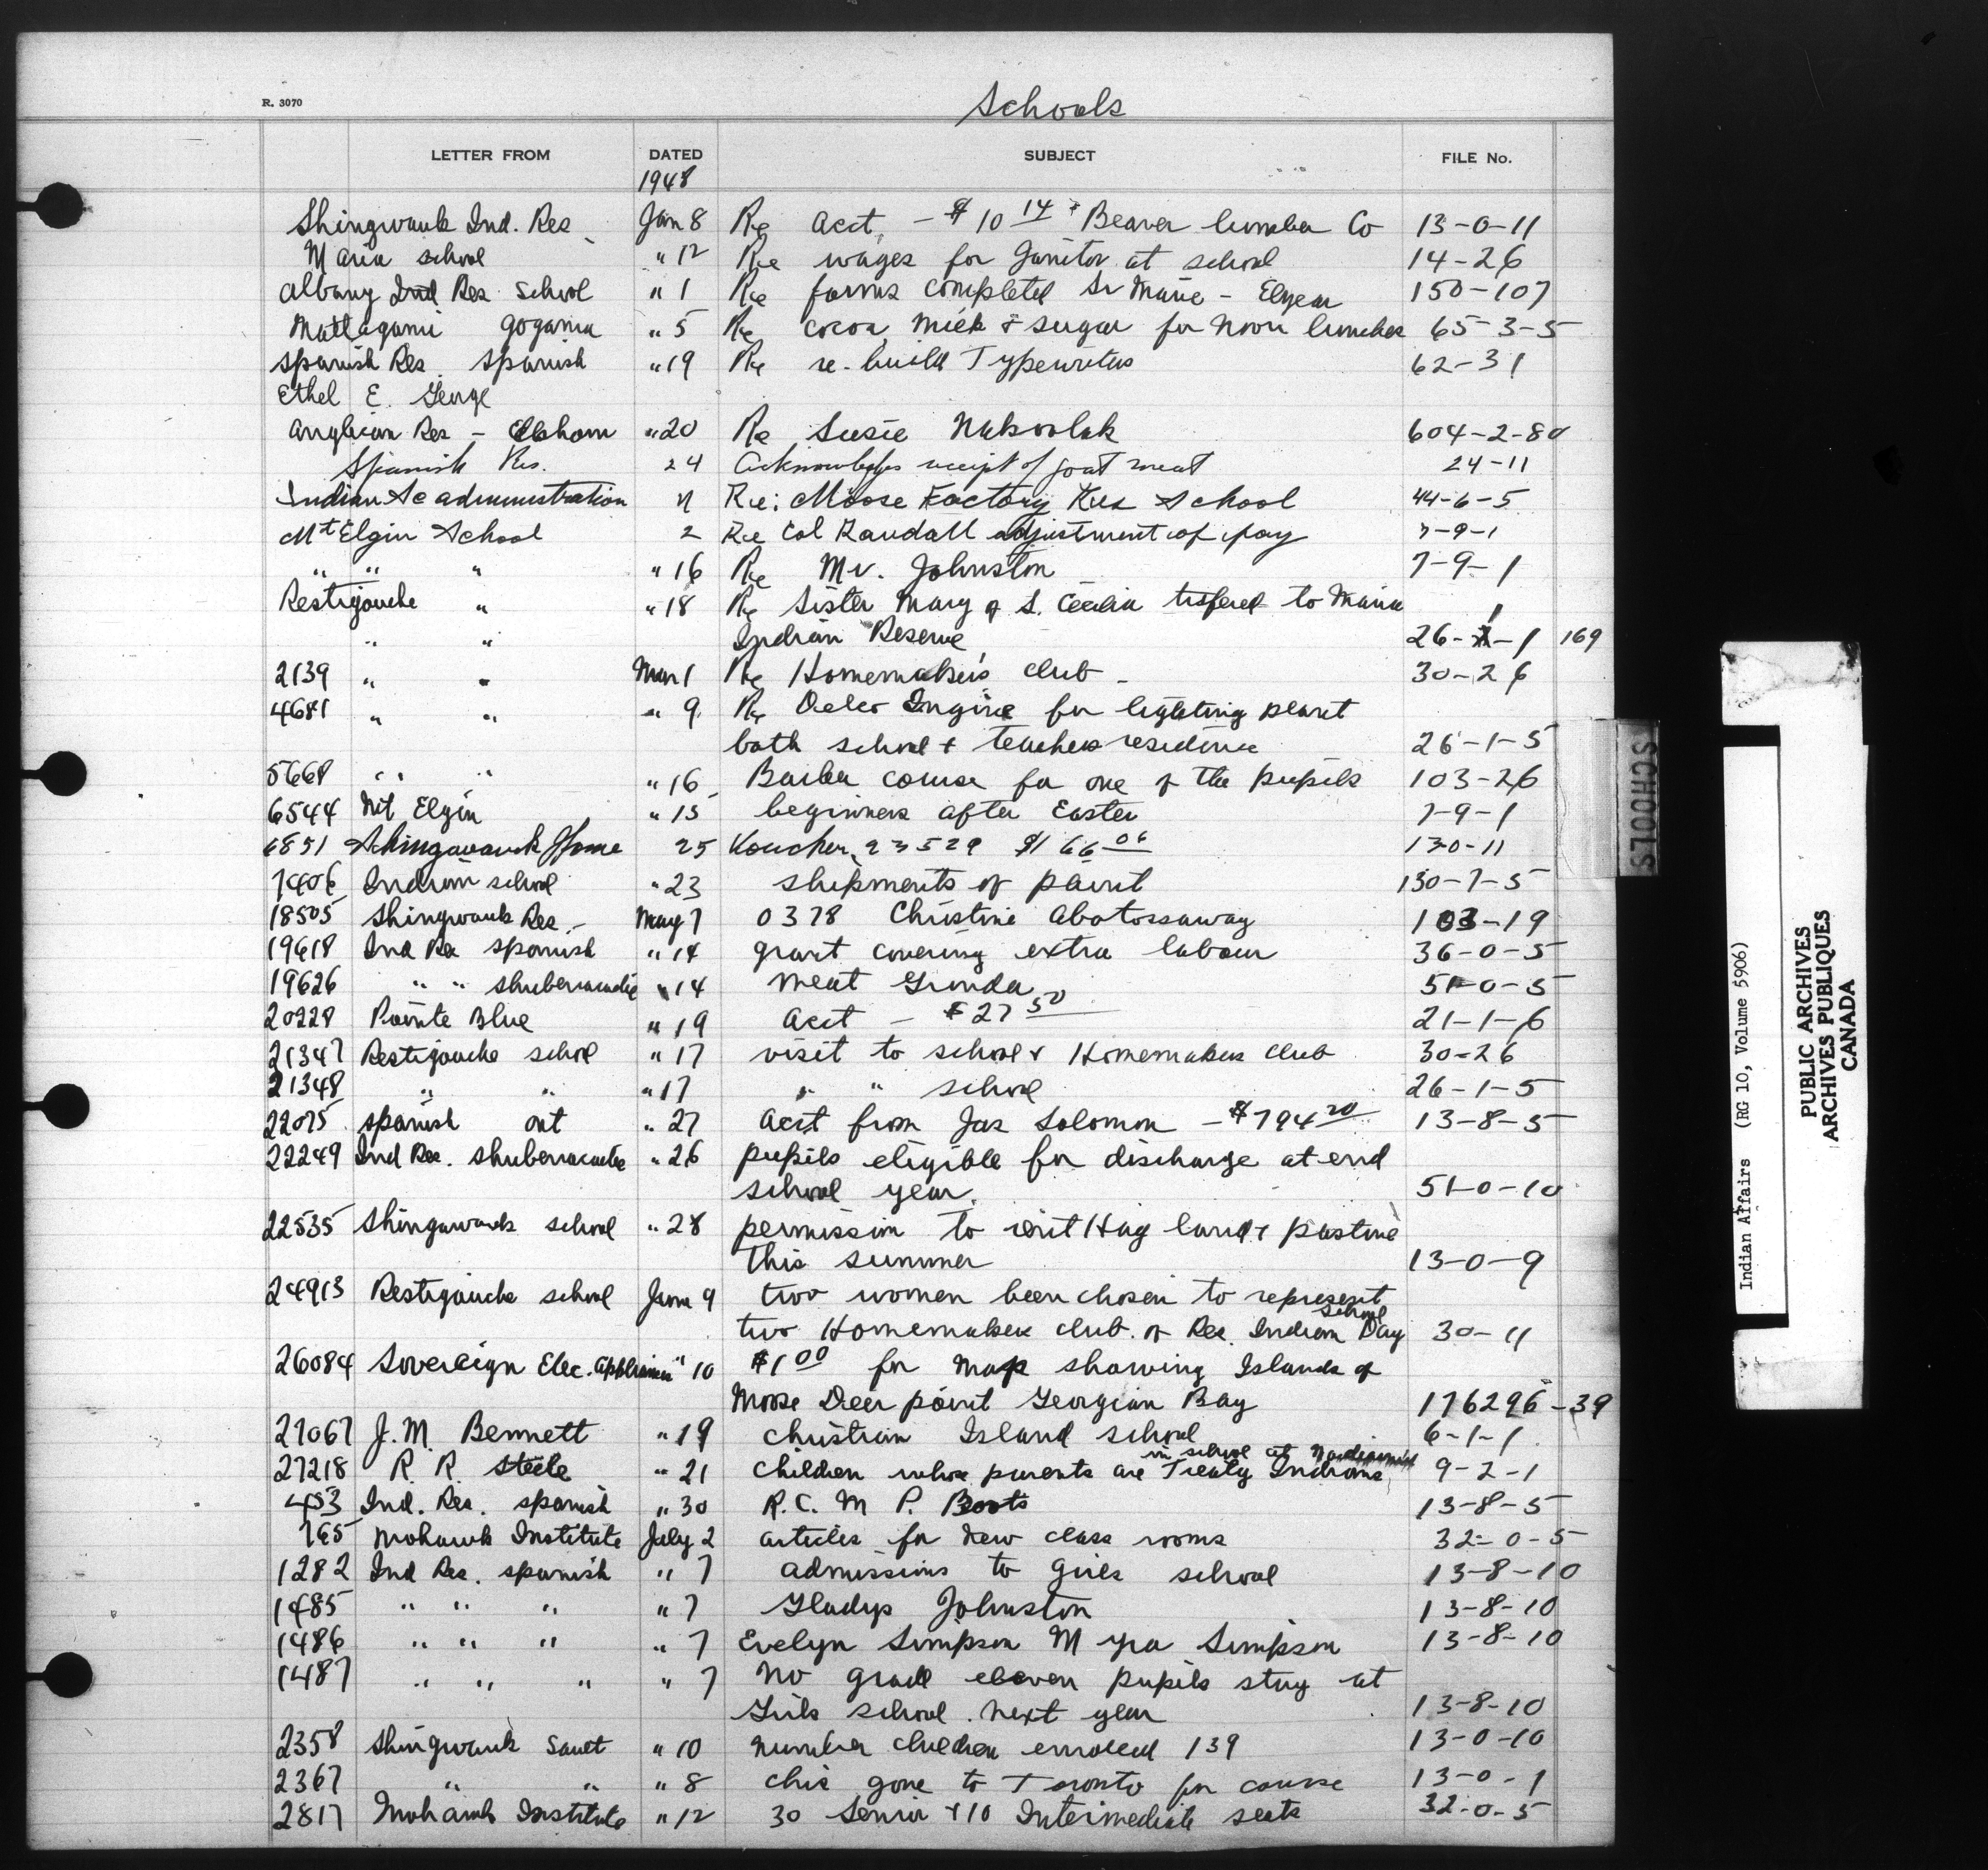 R. 3070
Schools
LETTER FROM DATED SUBJECT FILE No.
1948
Shingwauk Ind. Res Jan 8 Re Acct. - $10 14 Beaver lumber Co 13-0-11
Maria school " 12 Re wages for Janitor at school 14-26
Albany Ind Res School " 1 Re forms completed Sr Marie - Elyear 150-107
Mattagami Gogama " 5 Re cocoa, milk & sugar for noon lunches 65-3-5
Spanish Res. Spanish " 19 Re re-build Typewriters 62-31
Ethel E. George
Anglican Res - Elkhorn " 20 Re Susie 604-2-80
Spanish Res. 24 Acknowledges receipt of goat meat 24-11
Indian Ac administration Re: Moose Factory Res School 44-6-5
Mt Elgin School 2 Re Col Randall adjustment of pay 7-9-1
" " " " 16 Re Mr. Johnston 7-9-1
Restigouche " " 18 Re Sister Mary of S. Cecilia tsfered to Maria
" " Indian Reserve 26-1-1 169
2139 " " Mar 1 Re Homemakers club - 30-26
4681 " " " 9 Re Delco Engine for lighting plant
both school & teachers residence 26-1-5
5668 " " " 16 Barber course for one of the pupils 103-26
6544 Mt Elgin " 15 beginners after Easter 7-9-1
6851 Shingwauk Home 25 Voucher 23529 $166 06 130-11
7406 Indian school " 23 shipments of paint 150-7-5
18505 Shingwauk Res - May 7 0378 Christine Abotossaway 103-19
19618 Ind Res Spanish " 14 grant covering extra labour 36-0-5
19626 " " Shubenacadie " 14 Meat Grinder 51-0-5
20228 Pointe Blue " 19 Acct - $27 50 21-1-6
21347 Restigouche school " 17 visit to school & Homemakers club 30-26
21348 " " " 17 " " school 26-1-5
22075 Spanish Ont " 27 Acct from Jas Solomon - $794 20 13-8-5
22249 Ind Res. Shubenacadie " 26 pupils eligible for discharge at end
school year. 51-0-10
22535 Shingwauk school " 28 permission to rent Hay land & pasture
this summer 13-0-9
24913 Restigouche school June 9 two women been chosen to represent
two Homemakers club of Res. Indian School Day 30-11
26084 Sovereign Elec. Appliances " 10 $1 00 for Map showing Islands of
Moose Deer point Georgian Bay 176296-39
27067 J. M. Bennett " 19 Christian Island school 6-1-1
in school at
27218 R. R. Steele " 21 children whose parents are Treaty Indians 9-2-1
453 Ind. Res. Spanish " 30 R. C. M P. Boots 13-8-5
765 Mohawk Institute July 2 articles for new class rooms 32-0-5
1282 Ind Res. Spanish " 7 admissions to girls school 13-8-10
1485 " " " " 7 Gladys Johnston 13-8-10
1486 " " " " 7 Evelyn Simpson Myra Simpson 13-8-10
1487 " " " " 7 No grade eleven pupils stay at
Girls school next year 13-8-10
2358 Shingwauk Sault " 10 number children enrolled 139 13-0-10
2367 " " " 8 gone to Toronto for course 13-0-1
2817 Mohawk Institute " 12 30 Senior & 10 Intermediate seats 32-0-5
SCHOOLS
Indian Affairs (RG 10, Volume 5906)
PUBLIC ARCHIVES
ARCHIVES PUBLIQUES
CANADA